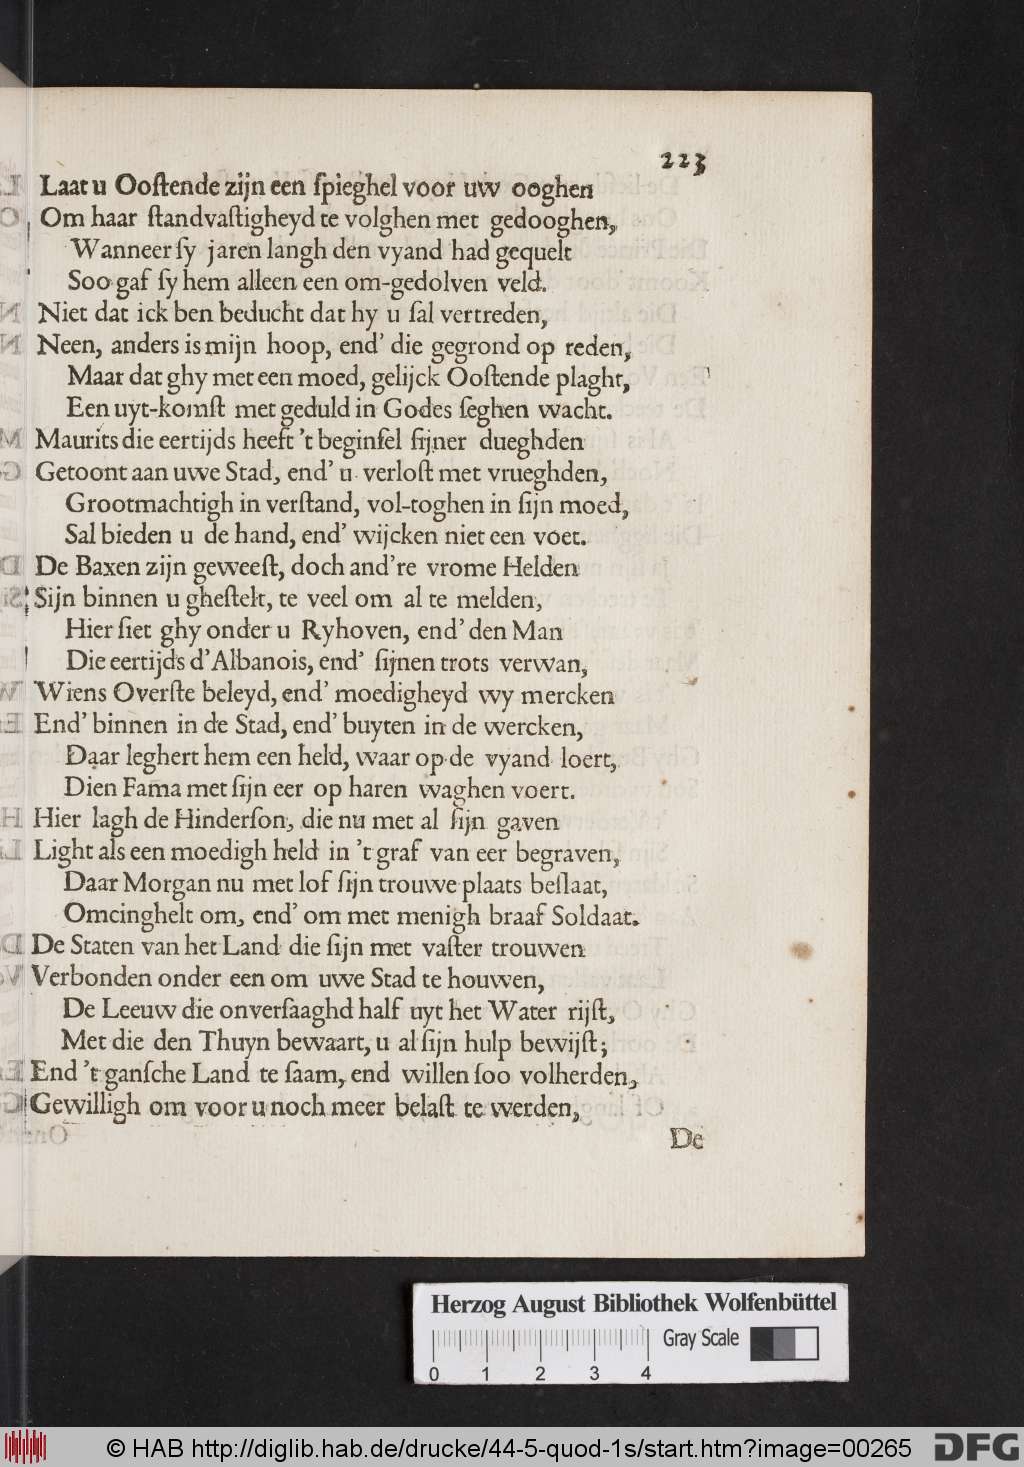 223
Laat u Ooſtende zijn een ſpieghel voor uw ooghen
Om haar ſtandvaſtigheyd te volghen met gedooghen,
Wanneer ſy jaren langh den vyand had gequelt
Soo gaf ſy hem alleen een om-gedolven veld.
Niet dat ick ben beducht dat hy u ſal vertreden,
Neen, anders is mijn hoop, end' die gegrond op reden,
Maar dat ghy met een moed, gelijck Ooſtende plaght,
Een uyt-komſt met geduld in Godes ſeghen wacht.
Maurits die eertijds heeft 't beginſel ſijner dueghden
Getoont aan uwe Stad, end' u verloſt met vrueghden,
Grootmachtigh in verſtand, vol-toghen in ſijn moed,
Sal bieden u de hand, end' wijcken niet een voet.
De Baxen zijn geweeſt, doch and're vrome Helden
Sijn binnen u gheſtelt, te veel om al te melden,
Hier ſiet ghy onder u Ryhoven, end' den Man
Die eertijds d'Albanois, end' ſijnen trots verwan,
Wiens Overſte beleyd, end' moedigheyd wy mercken
End' binnen in de Stad, end' buyten in de wercken,
Daar leghert hem een held, waar op de vyand loert,
Dien Fama met ſijn eer op haren waghen voert.
Hier lagh de Hinderſon, die nu met al ſijn gaven
Light als een moedigh held in 't graf van eer begraven,
Daar Morgan nu met lof ſijn trouwe plaats beſlaat,
Omcinghelt om, end' om met menigh braaf Soldaat.
De Staten van het Land die ſijn met vaſter trouwen
Verbonden onder een om uwe Stad te houwen,
De Leeuw die onverſaaghd half uyt het Water rijſt,
Met die den Thuyn bewaart, u al ſijn hulp bewijſt;
End 't ganſche Land te ſaam, end willen ſoo volherden,
Gewilligh om voor u noch meer belaſt te werden,
De
Herzog August Bibliothek Wolfenbüttel
Gray Scale
0 1 2 3 4
© HAB http://diglib.hab.de/drucke/44-5-quod-1s/start.htm?image=00265
DFG